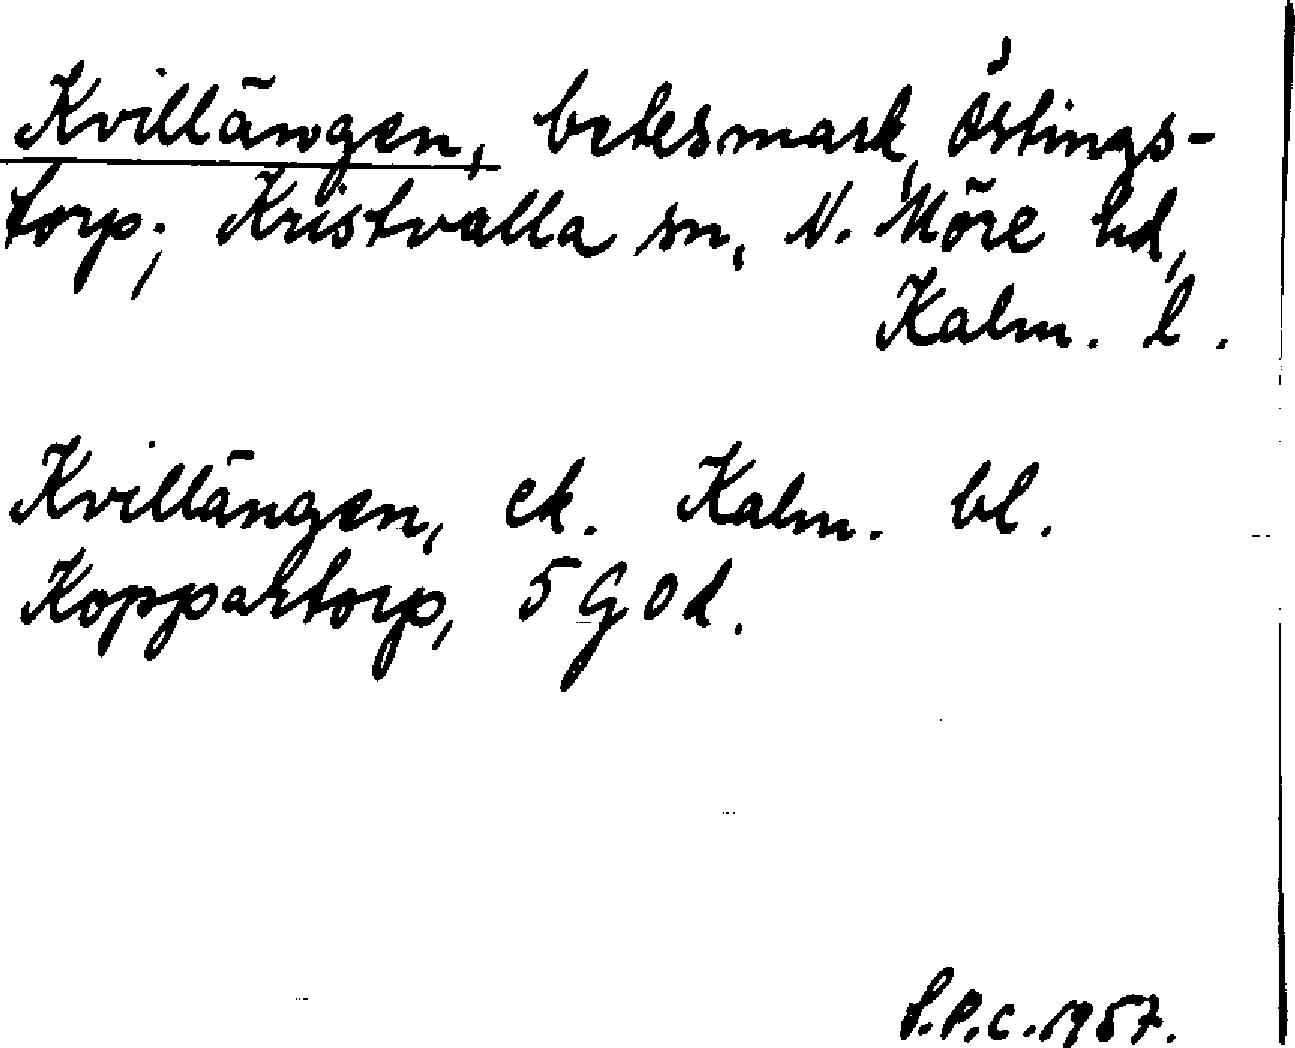 Kvillängen, betesmark, Östings-
torp; Kristvalla sn, N. Möre hd,
Kalm. l.
Kvillängen, ek. Kalm. bl.
Koppartorp, 5 G 0 d.
S.P.C. 1957.